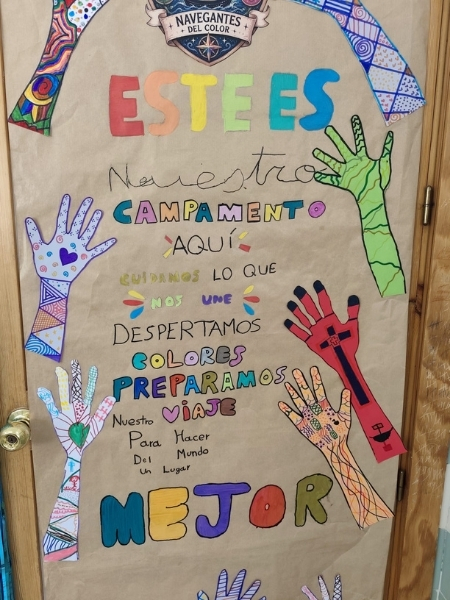 NAVEGANTES
DEL COLOR
ESTE ES
Nuestro
CAMPAMENTO
AQUÍ
CUIDAMOS LO QUE
NOS UNE
DESPERTAMOS
COLORES
PREPARAMOS
Nuestro VIAJE
Para Hacer
Del Mundo
Un Lugar
MEJOR